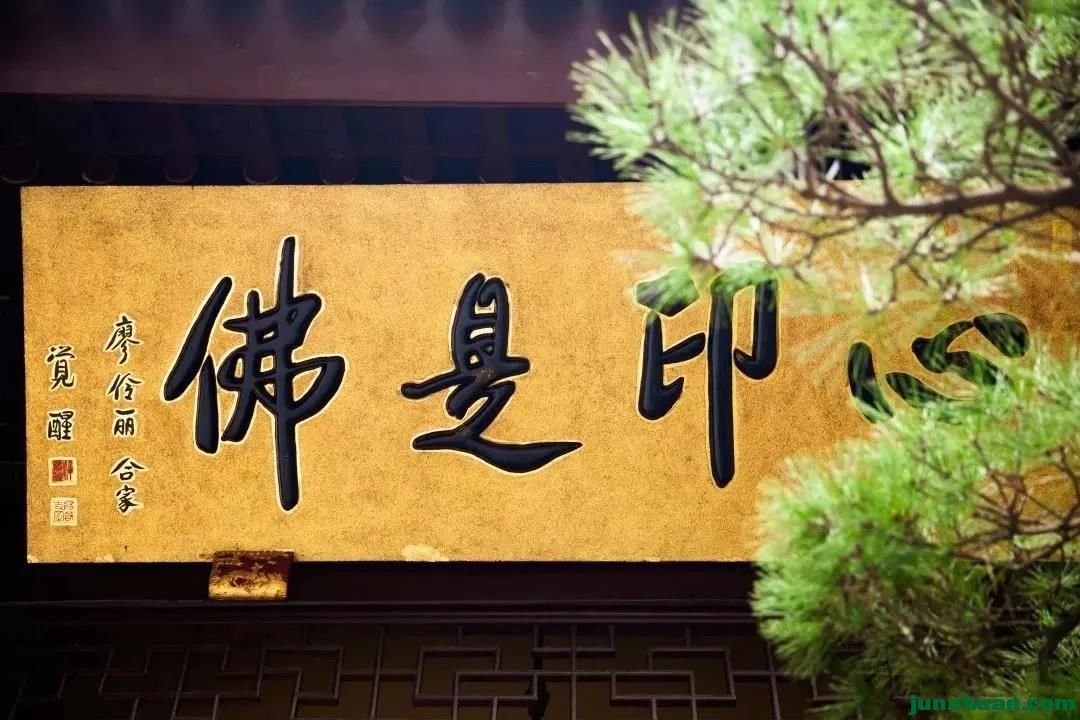 心印是佛
廖伶丽 合家
覚醒
junzhuan.com